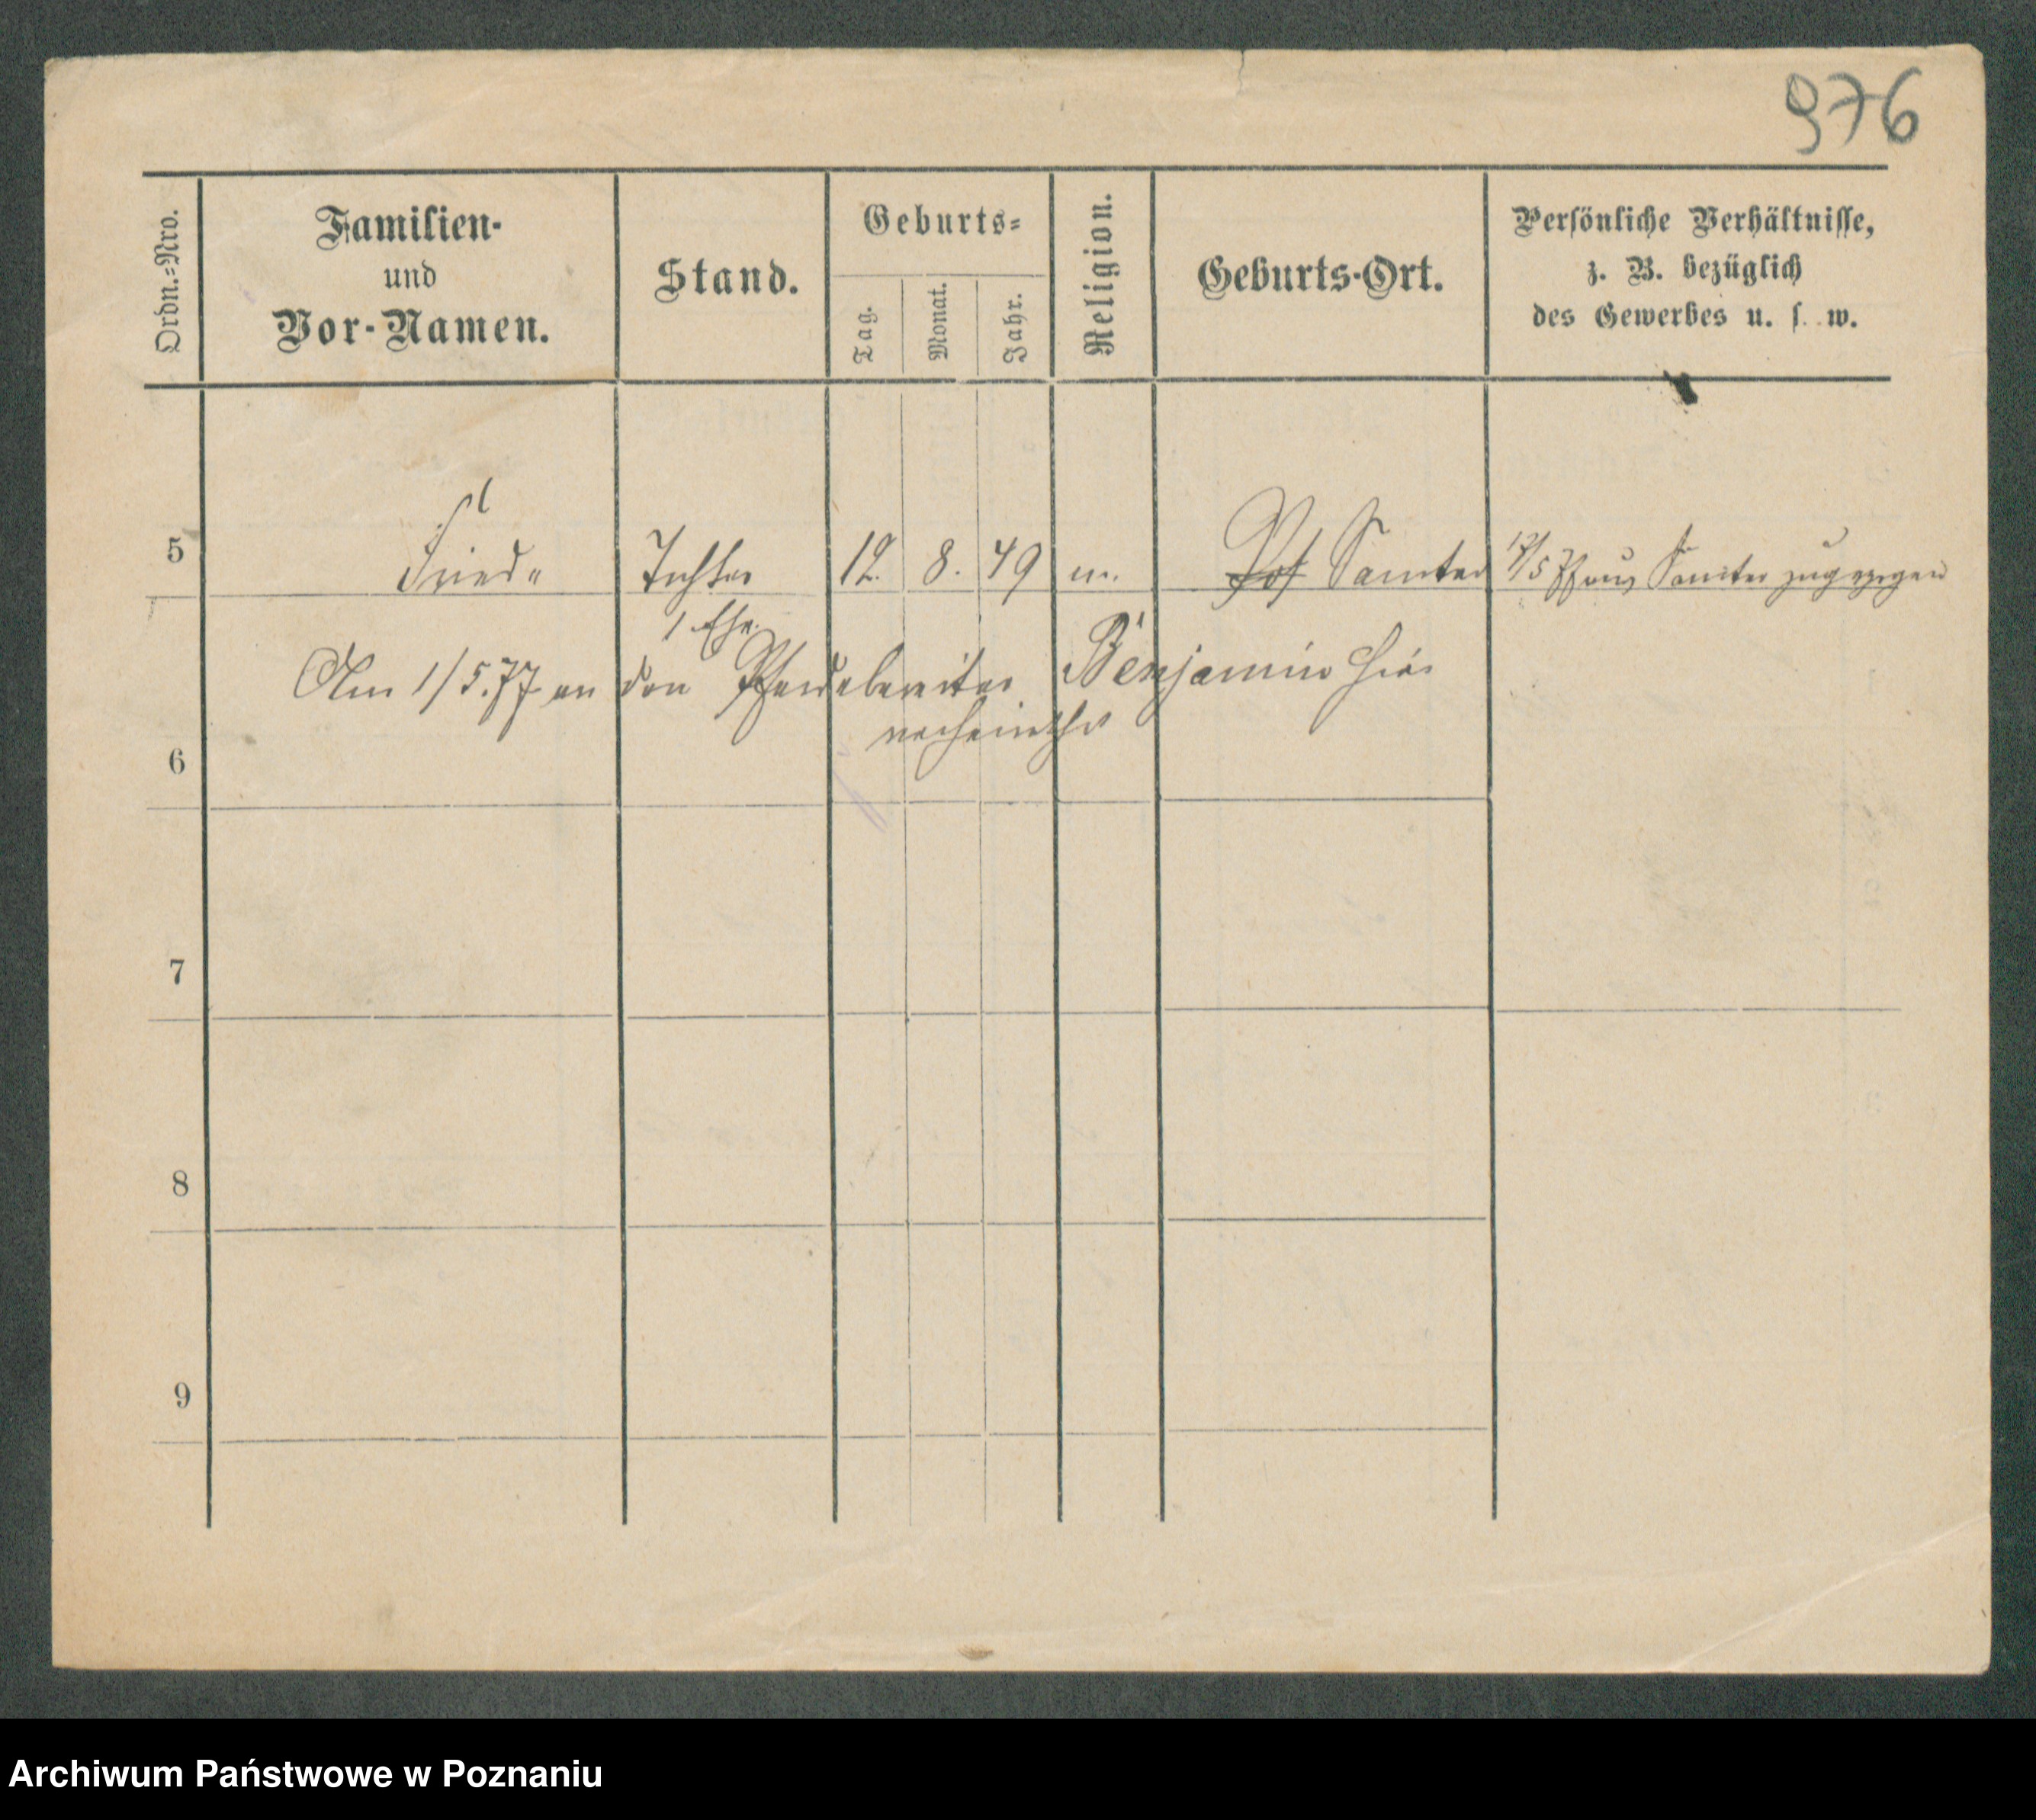 976
Ordn.=Nro.
Familien-
und
Vor-Namen.
Stand.
Geburts=
Tag.
Monat.
Jahr.
Religion.
Geburts-Ort.
Persönliche Verhältnisse,
z. B. bezüglich
des Gewerbes u. s. w.
5 Tochter 12. 8. 49 m. Samter 12/5 77 aus Samter zugezogen
1 Ehe.
Am 1/5.77 an den Benjamin hier
verheirathet
6
7
8
9
Archiwum Państwowe w Poznaniu